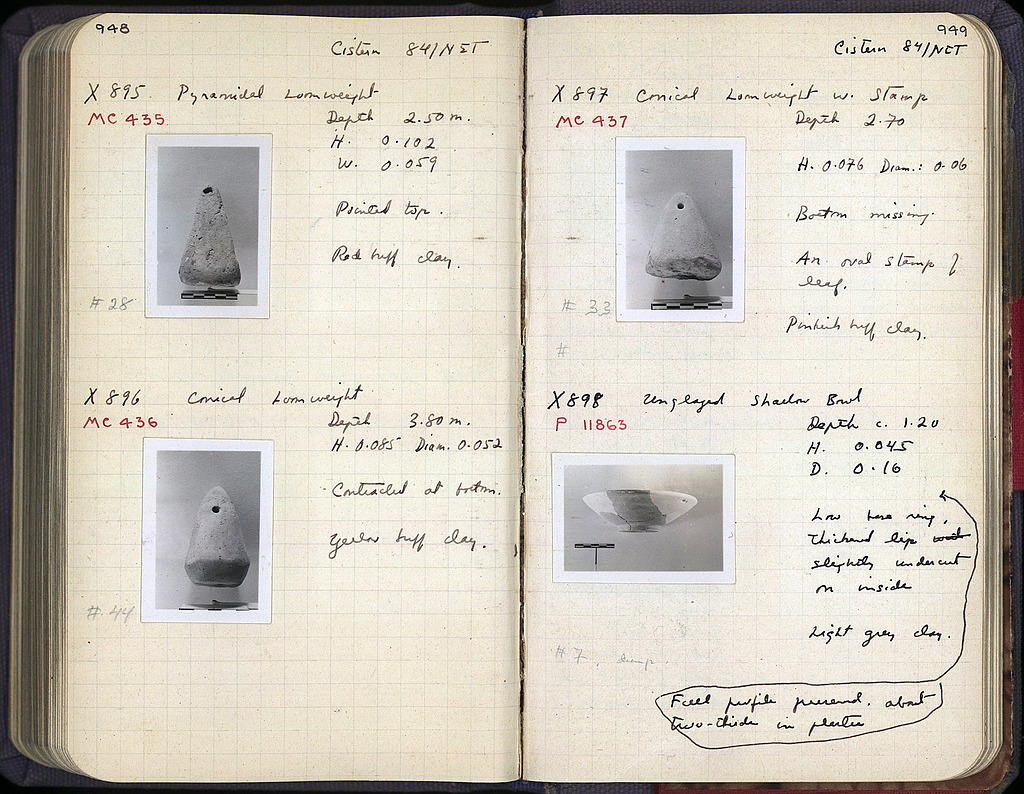 948
Cistern 84/NET
X 895. Pyramidal Loomweight
MC 435
Depth 2.50 m.
H. 0.102
W. 0.059
Pointed top.
Red buff clay.
# 28
X 896 Conical Loomweight
MC 436
Depth 3.80 m.
H. 0.085 Diam. 0.052
Contracted at bottom.
Yellow buff clay.
#. 44
949
Cistern 84/NET
X 897 Conical Loomweight w. Stamp
MC 437
Depth 2.70
H. 0.076 Diam.: 0.06
Bottom missing.
An oval stamp of
leaf.
Pinkish buff clay.
# 33
#
X 898 Unglazed Shallow Bowl
P 11863
Depth c. 1.20
H. 0.045
D. 0.16
Low base ring,
thickened lip
slightly undercut
on inside
Light grey clay.
# 7.
Full profile preserved. about
two-thirds in plaster